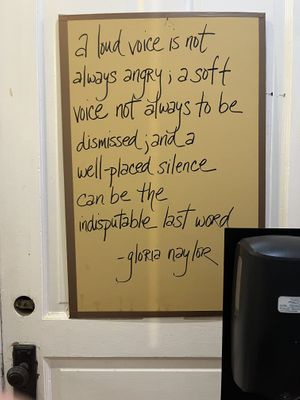 a loud voice is not
always angry; a soft
voice not always to be
dismissed; and a
well-placed silence
can be the
indisputable last word
-gloria naylor